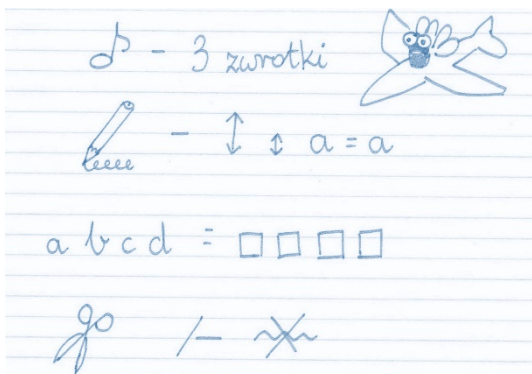 - 3 zwrotki
- a = a
a b c d =